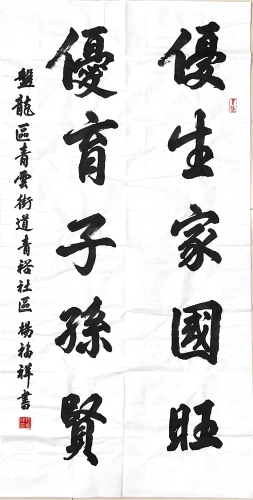 優生家國旺
優育子孫賢
盤龍區青雲街道青裕社區楊福祥書